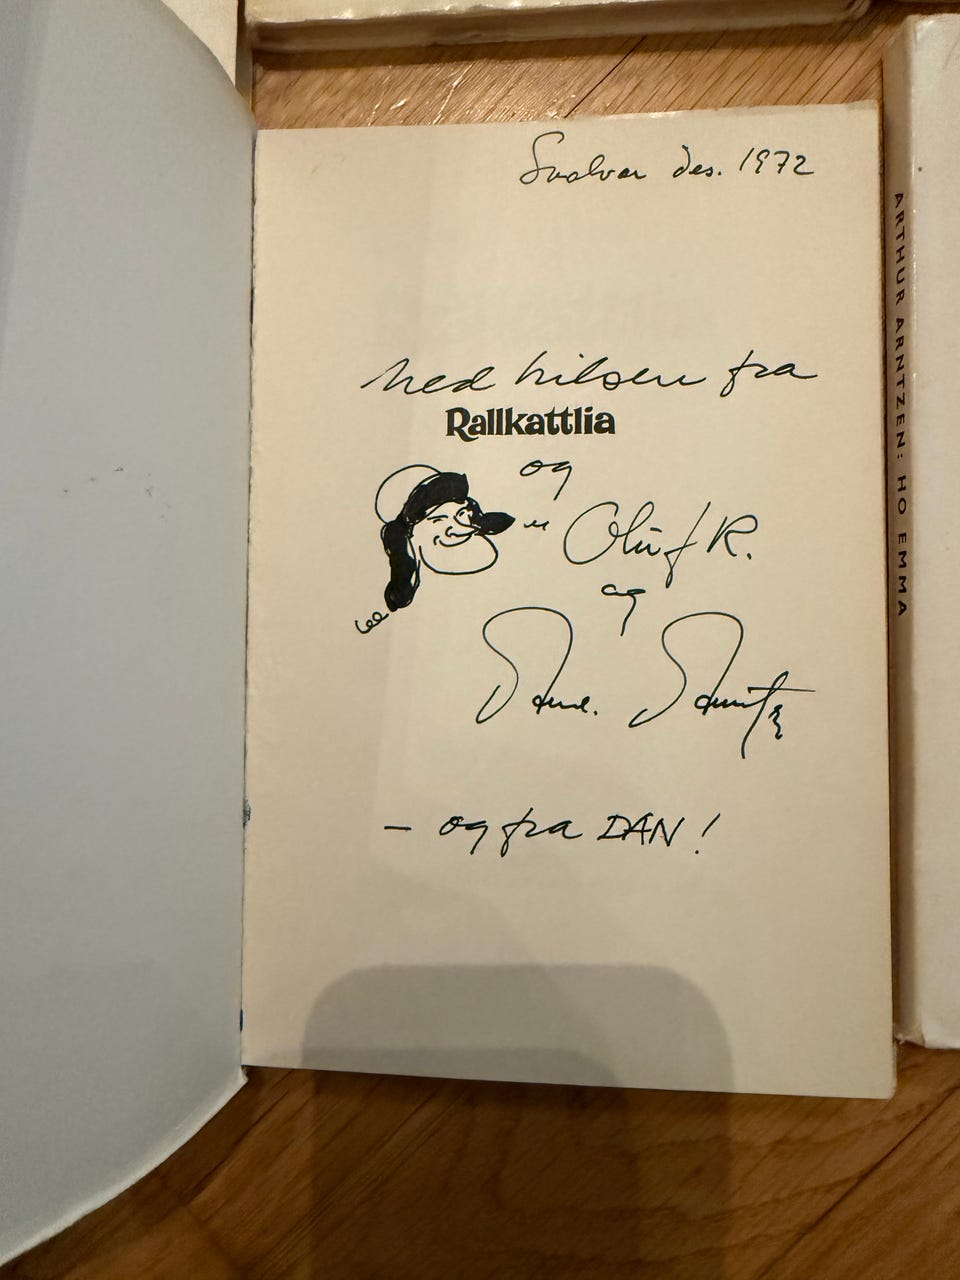 Svolvær des. 1972
med hilsen fra
Rallkattlia
og
Oluf R.
og
— og fra DAN!
ARTHUR ARNTZEN: HO EMMA